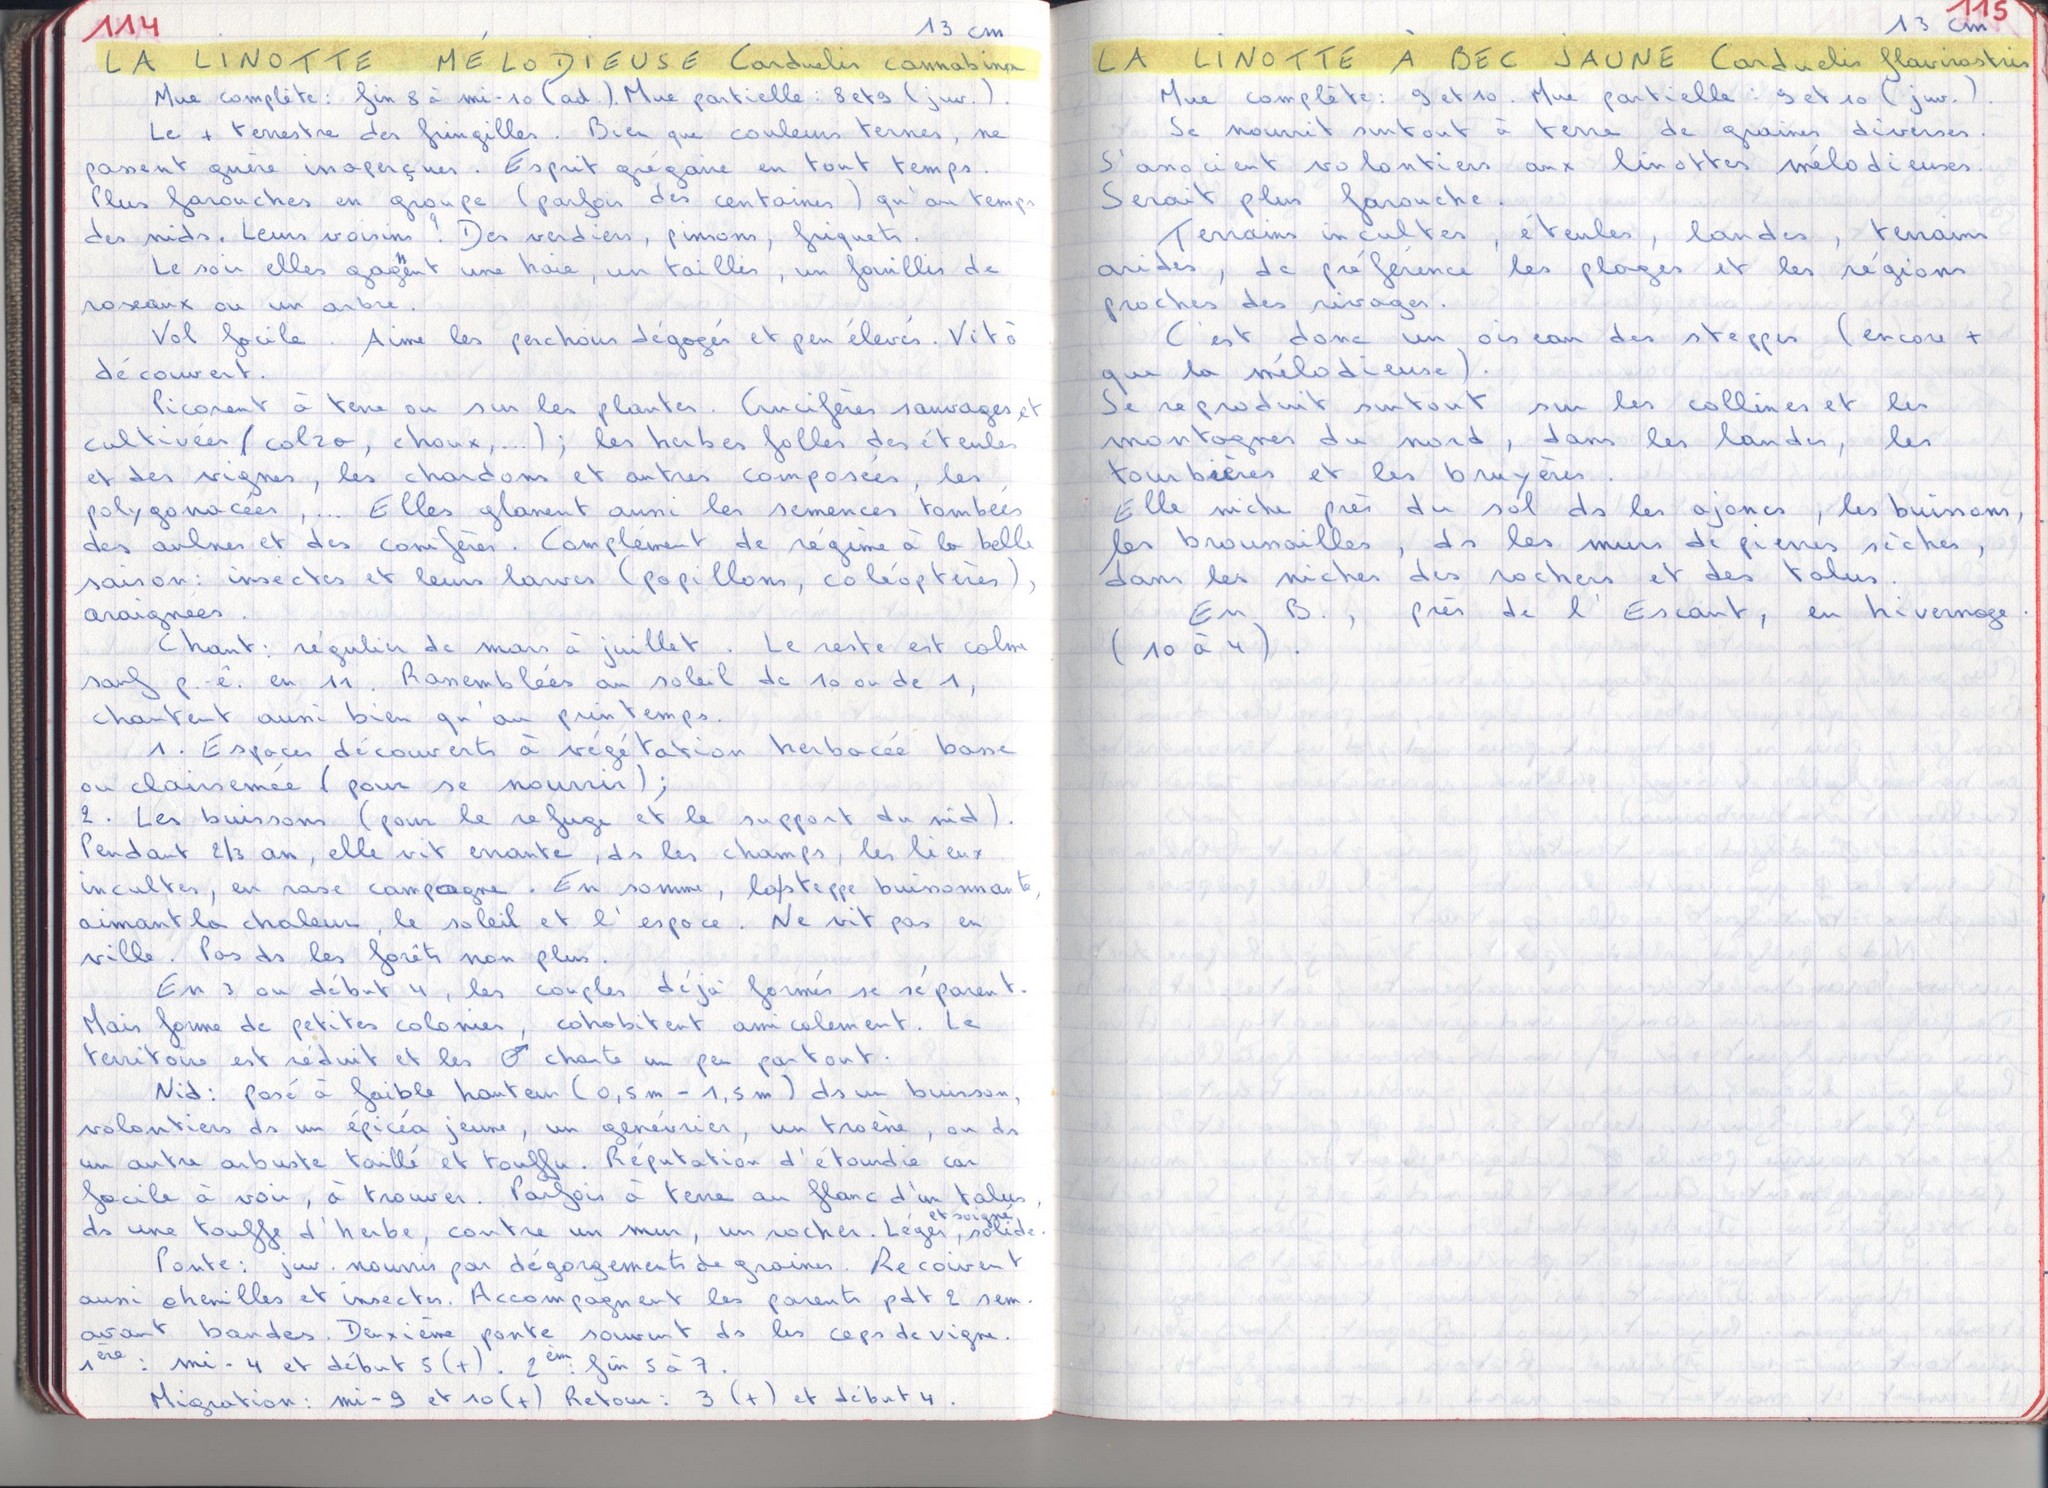 114
13 cm
LA LINOTTE MÉLODIEUSE Carduelis cannabina
Mue complète: fin 8 à mi-10 (ad.). Mue partielle: 8 et 9 (juv.).
Le + terrestre des fringilles. Bien que couleurs ternes, ne
passent guère inaperçues. Esprit grégaire en tout temps.
Plus farouches en groupe (parfois des centaines) qu'au temps
des nids. Leurs voisins? Des verdiers, pinsons, friquets.
Le soir elles gagnent une haie, un taillis, un fouillis de
roseaux ou un arbre.
Vol facile. Aime les perchoirs dégagés et peu élevés. Vit à
découvert.
Picorent à terre ou sur les plantes. Crucifères sauvages et
cultivées (colza, choux,...); les herbes folles des éteules
et des vignes, les chardons et autres composées, les
polygonacées,... Elles glanent aussi les semences tombées
des aulnes et des conifères. Complément de régime à la belle
saison: insectes et leurs larves (papillons, coléoptères),
araignées.
Chant: régulier de mars à juillet. Le reste est calme
sauf p.-ê. en 11. Rassemblées au soleil de 10 ou de 1,
chantent aussi bien qu'au printemps.
1. Espaces découverts à végétation herbacée basse
ou clairsemée (pour se nourrir);
2. Les buissons (pour le refuge et le support du nid).
Pendant 2/3 an, elle vit errante, ds les champs, les lieux
incultes, en rase campagne. En somme, la steppe buissonnante,
aimant la chaleur, le soleil et l'espace. Ne vit pas en
ville. Pas ds les forêts non plus.
En 3 ou début 4, les couples déjà formés se séparent.
Mais forme de petites colonies, cohabitent amicalement. Le
territoire est réduit et les ♂ chante un peu partout.
Nid: posé à faible hauteur (0,5m - 1,5m) ds un buisson,
volontiers ds un épicéa jeune, un genévrier, un troène, ou ds
un autre arbuste taillé et touffu. Réputation d'étourdie car
facile à voir, à trouver. Parfois à terre au flanc d'un talus,
ds une touffe d'herbe, contre un mur, un rocher. Léger, solide et soigné.
Ponte: juv. nourris par dégorgements de graines. Recoivent
aussi chenilles et insectes. Accompagnent les parents pdt 2 sem.
avant bandes. Deuxième ponte souvent ds les ceps de vigne.
1ère: mi-4 et début 5 (+). 2èm: fin 5 à 7.
Migration: mi-9 et 10 (+) Retour: 3 (+) et début 4.
115
13 cm
LA LINOTTE À BEC JAUNE Carduelis flavirostris
Mue complète: 9 et 10. Mue partielle: 9 et 10 (juv.).
Se nourrit surtout à terre de graines diverses.
S'associent volontiers aux linottes mélodieuses.
Serait plus farouche.
Terrains incultes, éteules, landes, terrains
arides, de préférence les plages et les régions
proches des rivages.
C'est donc un oiseau des steppes (encore +
que la mélodieuse).
Se reproduit surtout sur les collines et les
montagnes du nord, dans les landes, les
tourbières et les bruyères.
Elle niche près du sol ds les ajoncs, les buissons,
les broussailles, ds les murs de pierres sèches,
dans les niches des rochers et des talus.
En B., près de l'Escaut, en hivernage.
(10 à 4).